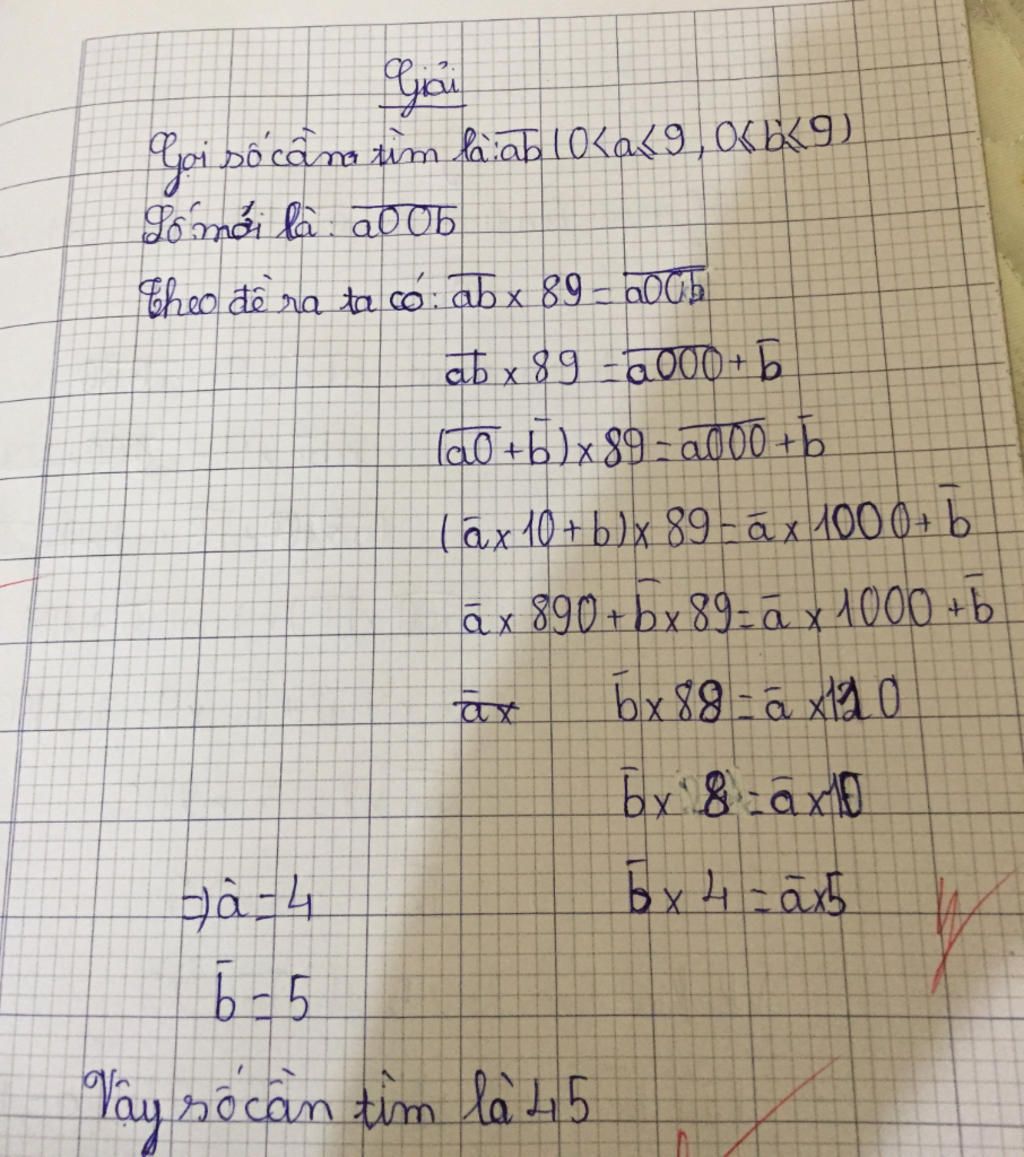 Giải
Gọi số cần tìm là: ab (0<a≤9, 0≤b≤9)
Số mới là: a00b
Theo đề ra ta có: ab × 89 = a00b
ab × 89 = a000 + b
(a0 + b) × 89 = a000 + b
(a × 10 + b) × 89 = a × 1000 + b
a × 890 + b × 89 = a × 1000 + b
a × b × 88 = a × 110
b × 8 = a × 10
b × 4 = a × 5
=> a = 4
b = 5
Vậy số cần tìm là 45